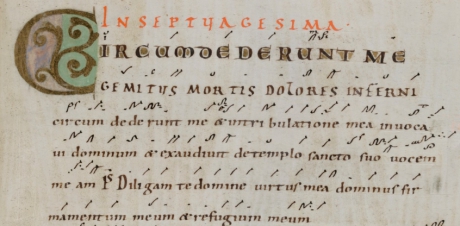 IN SEPTUAGESIMA
CIRCUMDEDERUNT ME
GEMITUS MORTIS DOLORES INFERNI
circum dederunt me & intribulatione mea invoca
vi dominum & exaudivit detemplo sancto suo vocem
me am Ps Diligam te domine virtus mea dominus fir
mamentum meum & refugium meum